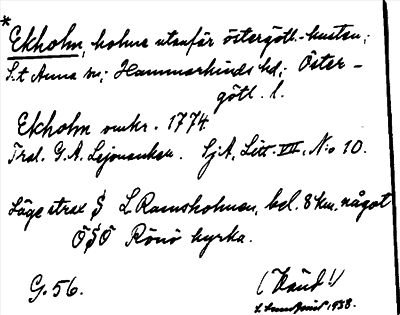 *
Ekholm, holme utanför östergötl. kusten;
S:t Anna sn; Hammarkinds hd; Öster-
götl. l.
Ekholm omkr. 1774.
G.A. SjA, Litt. VII, N:o 10.
Läge strax S L. Ramsholmen, bel. 8 km. något
ÖSÖ Rönö kyrka.
G. 56.
(Vänd!)
1938.